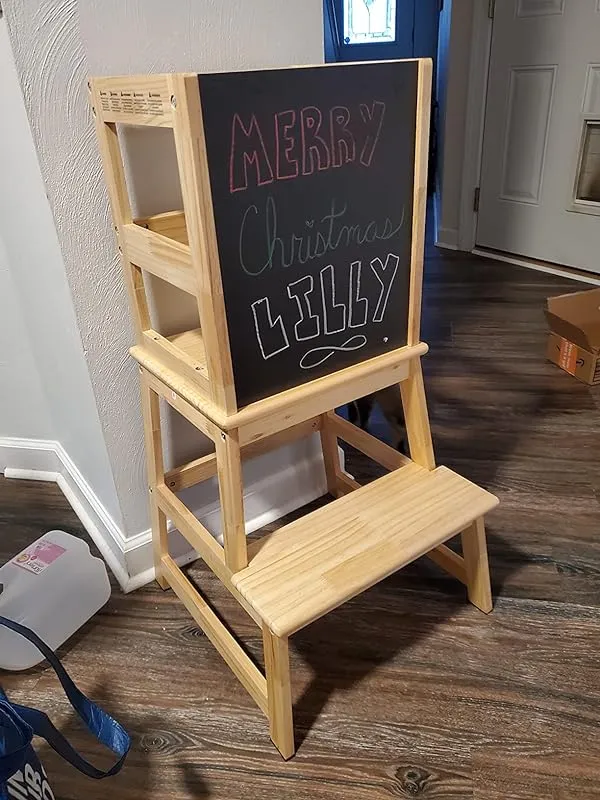 MERRY
Christmas
LILLY